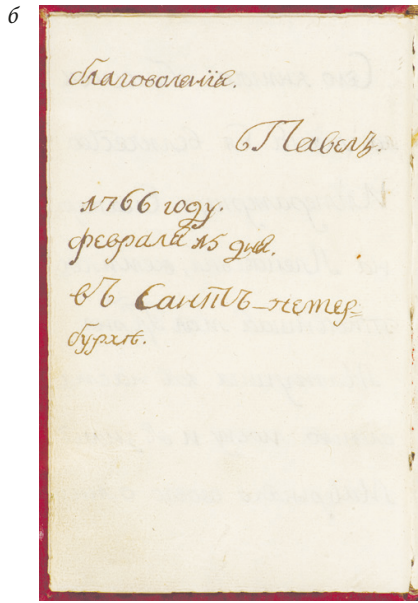 б
благоволенїя.
Павелъ.
1766 году.
февраля 15 дня.
въ Санктъ-петер-
бурхѣ.